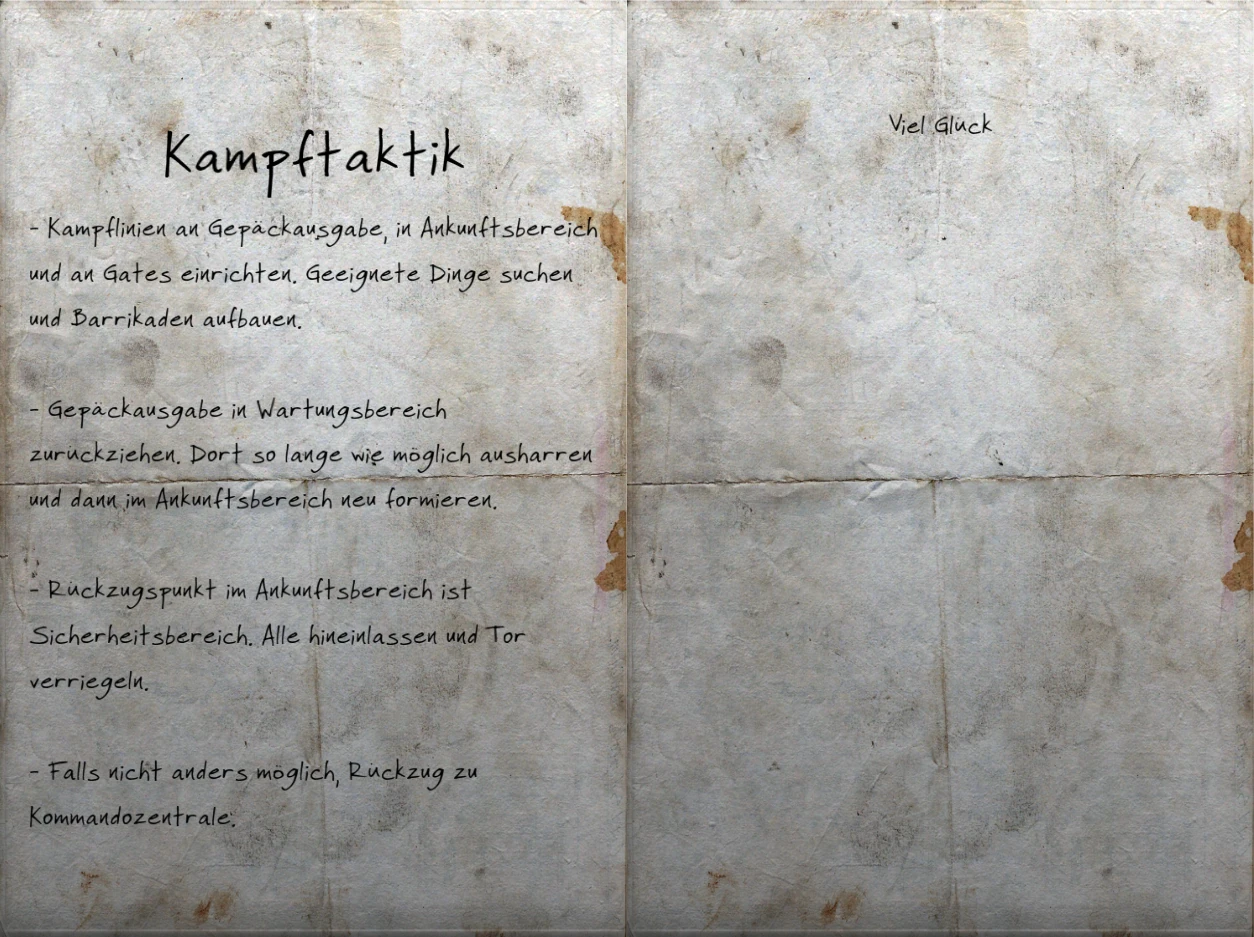 Kampftaktik
- Kampflinien an Gepäckausgabe, in Ankunftsbereich
und an Gates einrichten. Geeignete Dinge suchen
und Barrikaden aufbauen.
- Gepäckausgabe in Wartungsbereich
zurückziehen. Dort so lange wie möglich ausharren
und dann im Ankunftsbereich neu formieren.
- Rückzugspunkt im Ankunftsbereich ist
Sicherheitsbereich. Alle hineinlassen und Tor
verriegeln.
- Falls nicht anders möglich, Rückzug zu
Kommandozentrale.
Viel Glück